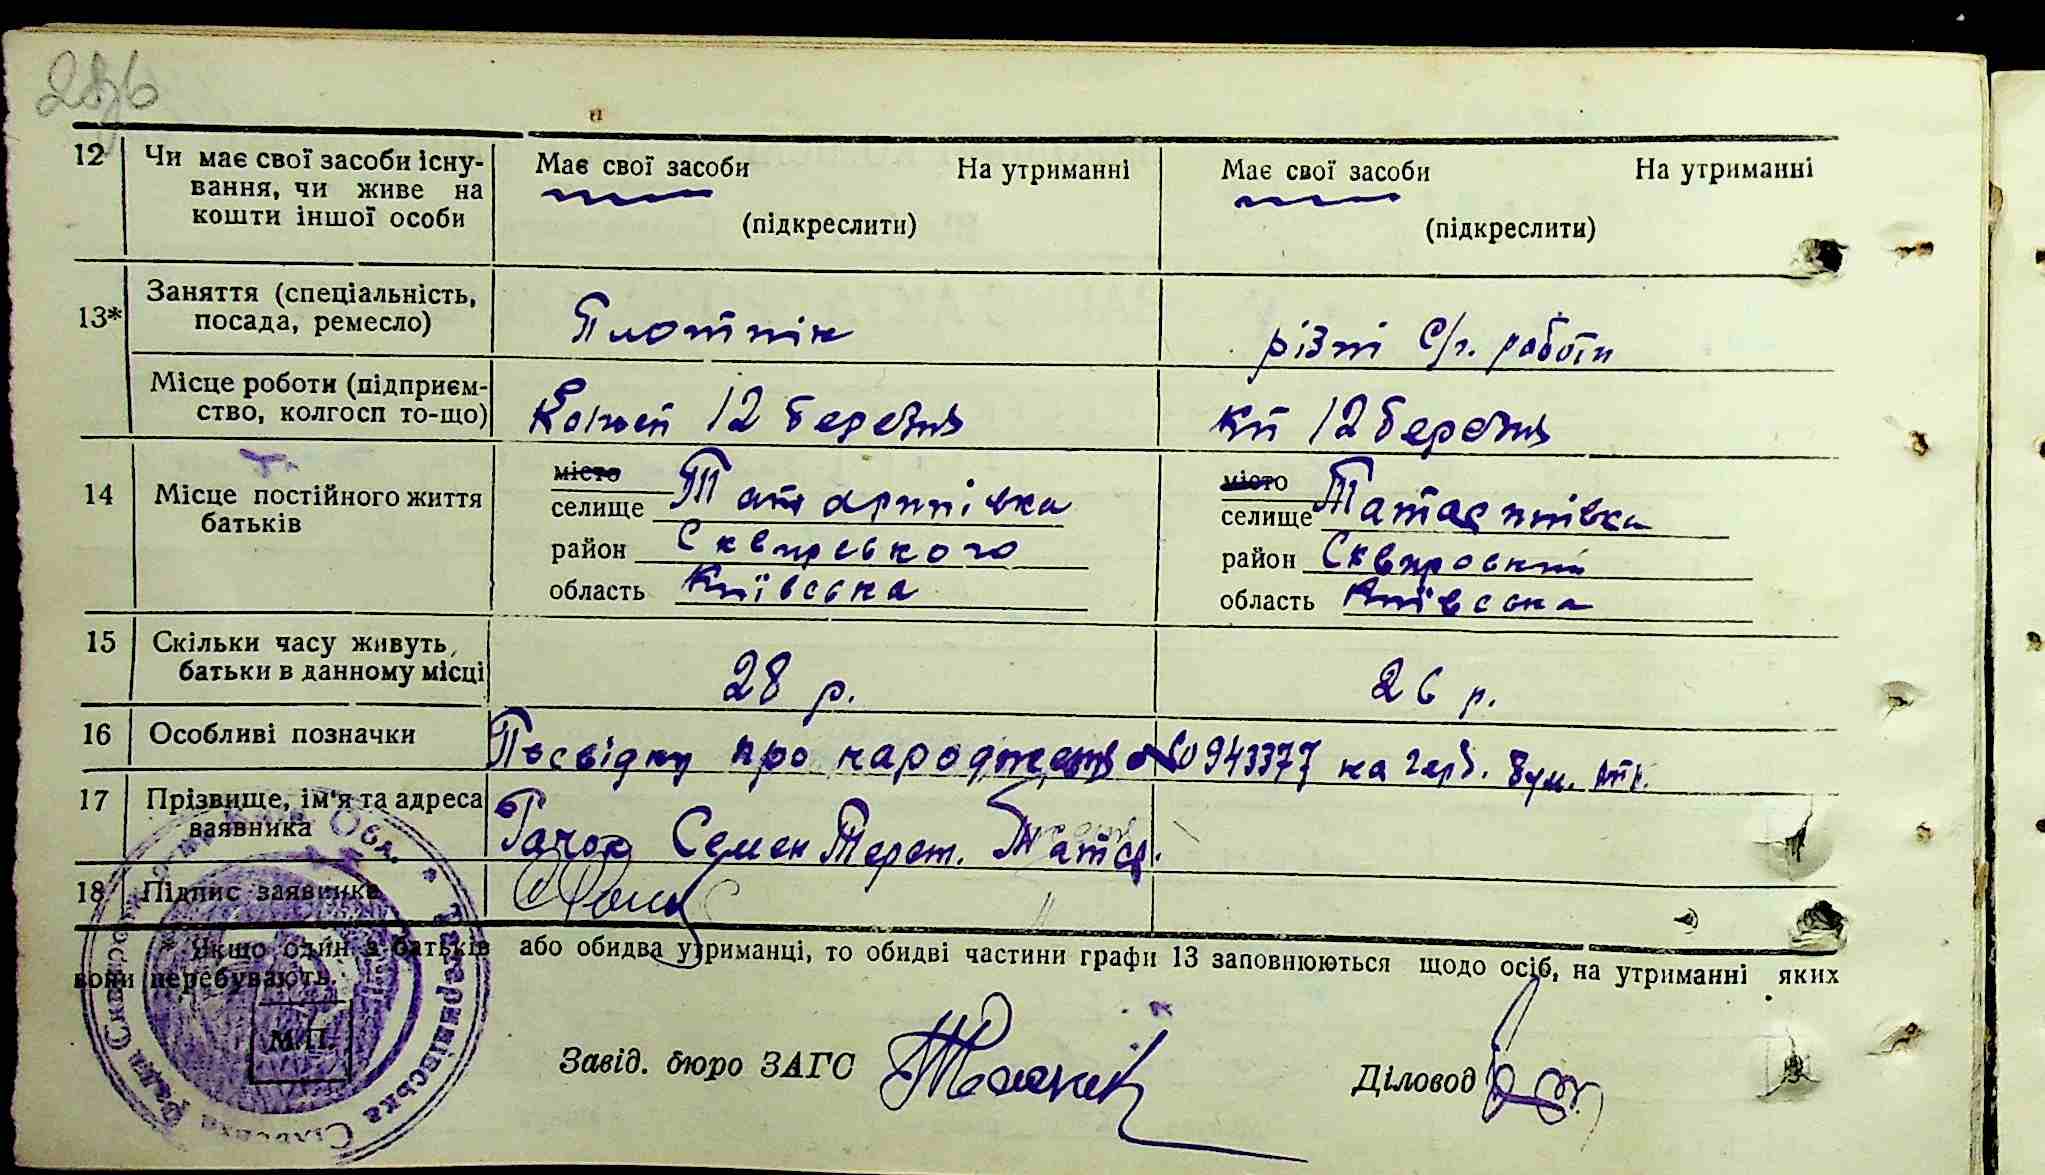 12 Чи має свої засоби існу- Має свої засоби На утриманні Має свої засоби На утриманні
вання, чи живе на
кошти іншої особи (підкреслити) (підкреслити)
13* Заняття (спеціальність, Плотнік різні с/г. роботи
посада, ремесло)
Місце роботи (підприєм- 12 березня кп 12 березня
ство, колгосп то-що)
14 Місце постійного життя місто місто
батьків селище Татаринівка селище Татаринівка
район Сквирського район Сквирський
область Київська область Київська
15 Скільки часу живуть, 28 р. 26 р.
батьки в данному місці
16 Особливі позначки Посвідку про народження № 0943377 на герб. бум.
17 Прізвище, ім'я та адреса Семен Терет. Татар.
заявника
18 Підпис заявника
* Якщо один з батьків або обидва утриманці, то обидві частини графи 13 заповнюються щодо осіб, на утриманні яких
вони перебувають.
М.П.
Завід. бюро ЗАГС Діловод